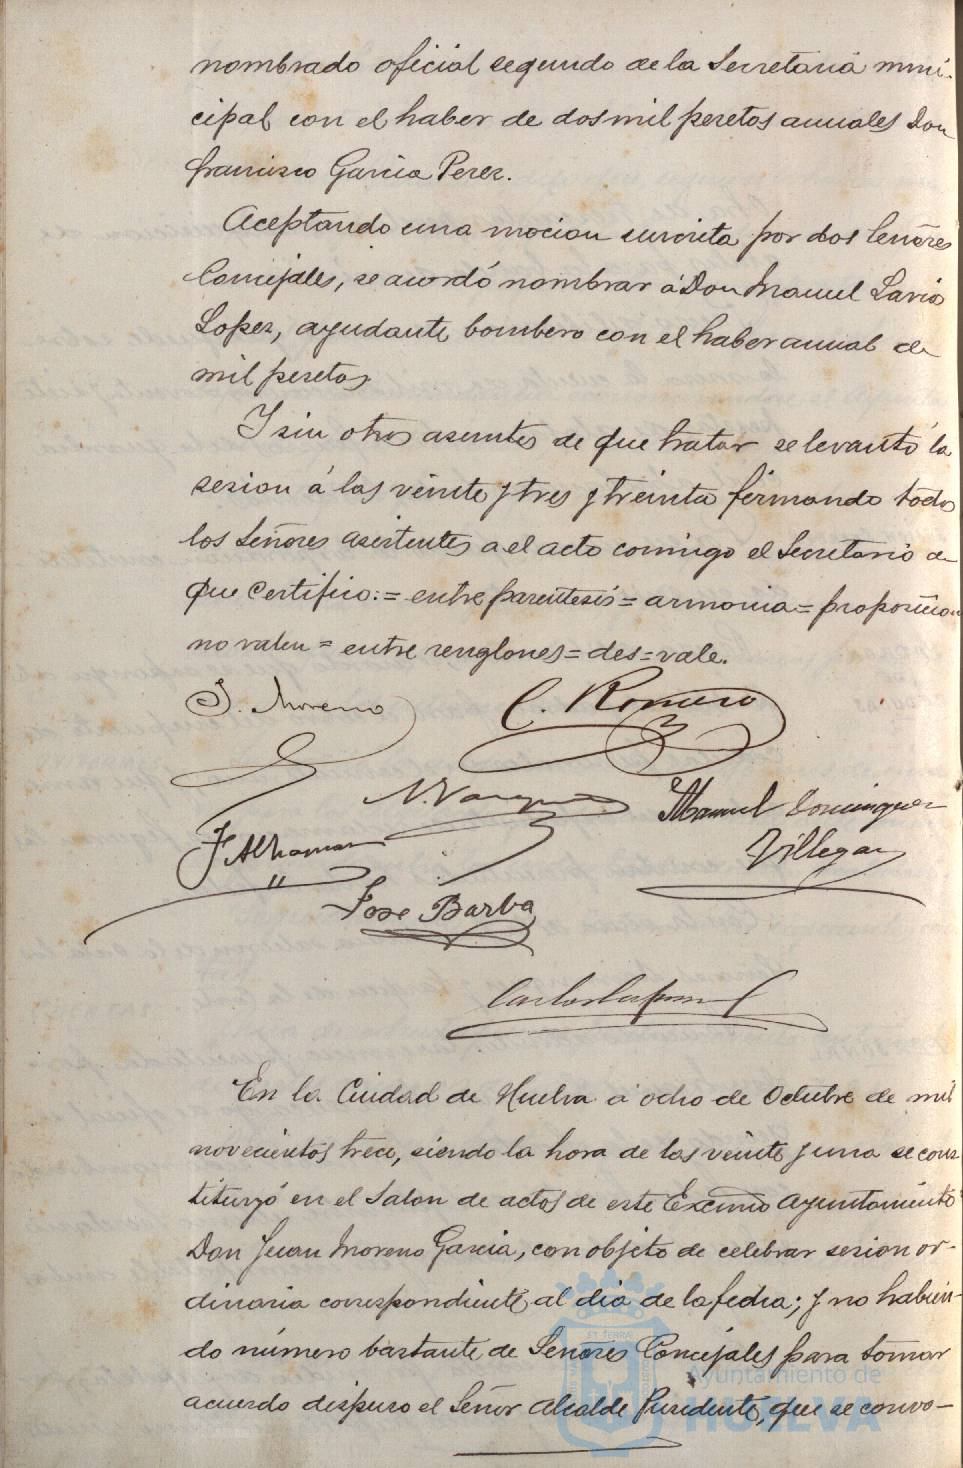 nombrado oficial segundo de la Secretaria muni-
cipal con el haber de dos mil pesetas anuales Don
francisco Garcia Perez.
Aceptando una mocion suscrita por dos Señores
Concejales, se acordó nombrar á Don Manuel
Lopez, ayudante bombero con el haber anual de
mil pesetas
Y sin otros asuntos de que tratar se levantó la
sesion á las veinte y tres y treinta firmando todos
los Señores asistentes a el acto conmigo el Secretario de
que Certifico:= entre parentesis = armonia = proposicion
no valen = entre renglones = des = vale.
J. Moreno
C. Romero
N. Vazquez
Manuel Dominguez
Villegas
José Barba
En la Ciudad de Huelva á ocho de Octubre de mil
novecientos trece, siendo la hora de las veinte y una se cons
tituyó en el Salon de actos de este Excmo Ayuntamiento
Don Juan Moreno Garcia, con objeto de celebrar sesion or-
dinaria correspondiente al dia de la fecha; y no habien-
do número bastante de Señores Concejales para tomar
acuerdo dispuso el Señor Alcalde Presidente, que se convo-
Ayuntamiento de
HUELVA